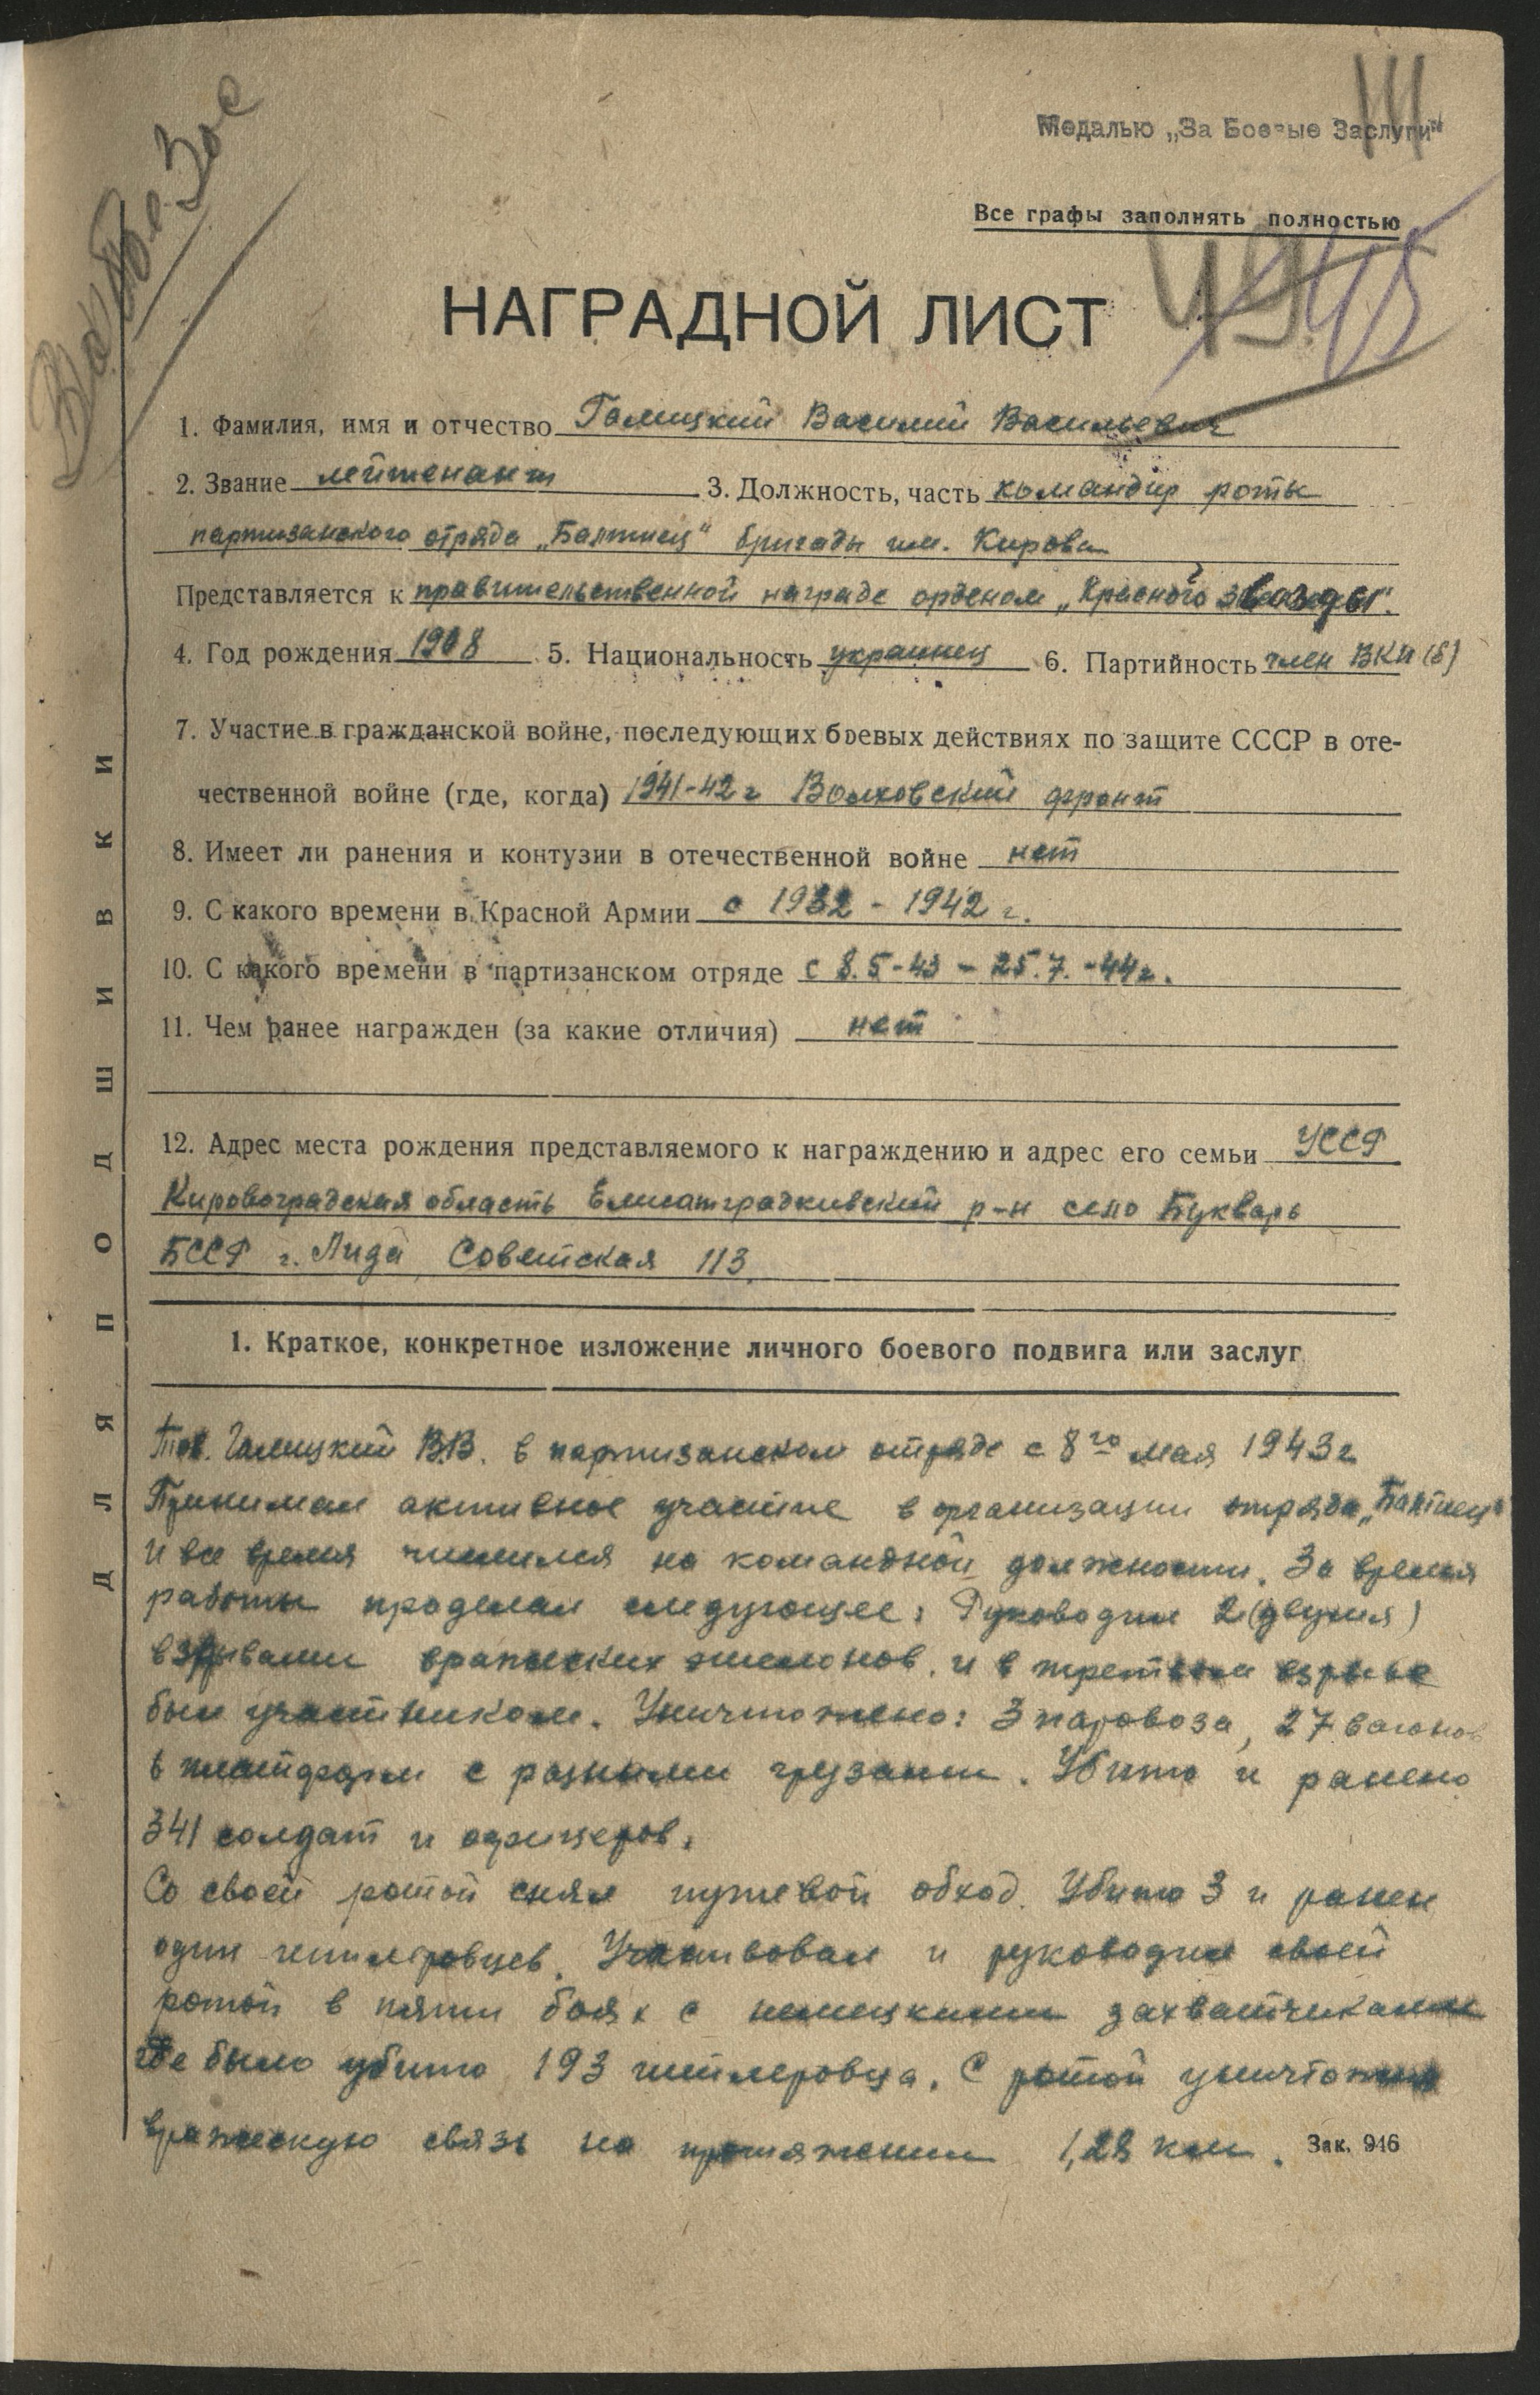 Медалью „За Боевые Заслуги"
Все графы заполнять полностью
49
НАГРАДНОЙ ЛИСТ
1. Фамилия, имя и отчество Галицкий Василий Васильевич
2. Звание лейтенант 3. Должность, часть командир роты
партизанского отряда „Балтиец" бригады им. Кирова
Представляется к правительственной награде орденом „Красного звезды".
4. Год рождения 1908 5. Национальность украинец 6. Партийность член ВКП(б)
7. Участие в гражданской войне, последующих боевых действиях по защите СССР в оте-
чественной войне (где, когда) 1941-42 г Волховский фронт
8. Имеет ли ранения и контузии в отечественной войне нет
9. С какого времени в Красной Армии с 1932 - 1942 г.
10. С какого времени в партизанском отряде с 8.5-43 - 25.7.-44 г.
11. Чем ранее награжден (за какие отличия) нет
12. Адрес места рождения представляемого к награждению и адрес его семьи УССР
Кировоградская область р-н село Букварь
БССР г. Лида Советская 113.
1. Краткое, конкретное изложение личного боевого подвига или заслуг
Тов. Галицкий В.В. в партизанском отряде с 8го мая 1943 г.
Принимал активное участие в организации отряда „Балтиец"
и все время числился на командной должности. За время
работы проделал следующее: Руководил 2 (двумя)
взрывами вражеских эшелонов. и в третьем взрыве
был участником. Уничтожено: 3 паровоза, 27 вагонов
в платформ с разными грузами. Убито и ранено
341 солдат и офицеров.
Со своей ротой снял путевой обход. Убито 3 и ранен
один гитлеровцев. Участвовал и руководил своей
ротой в пяти боях с немецкими захватчиками
где было убито 193 гитлеровца. С ротой уничтожил
вражескую связь на протяжении 1,28 км.
Зак. 946
ДЛЯ ПОДШИВКИ